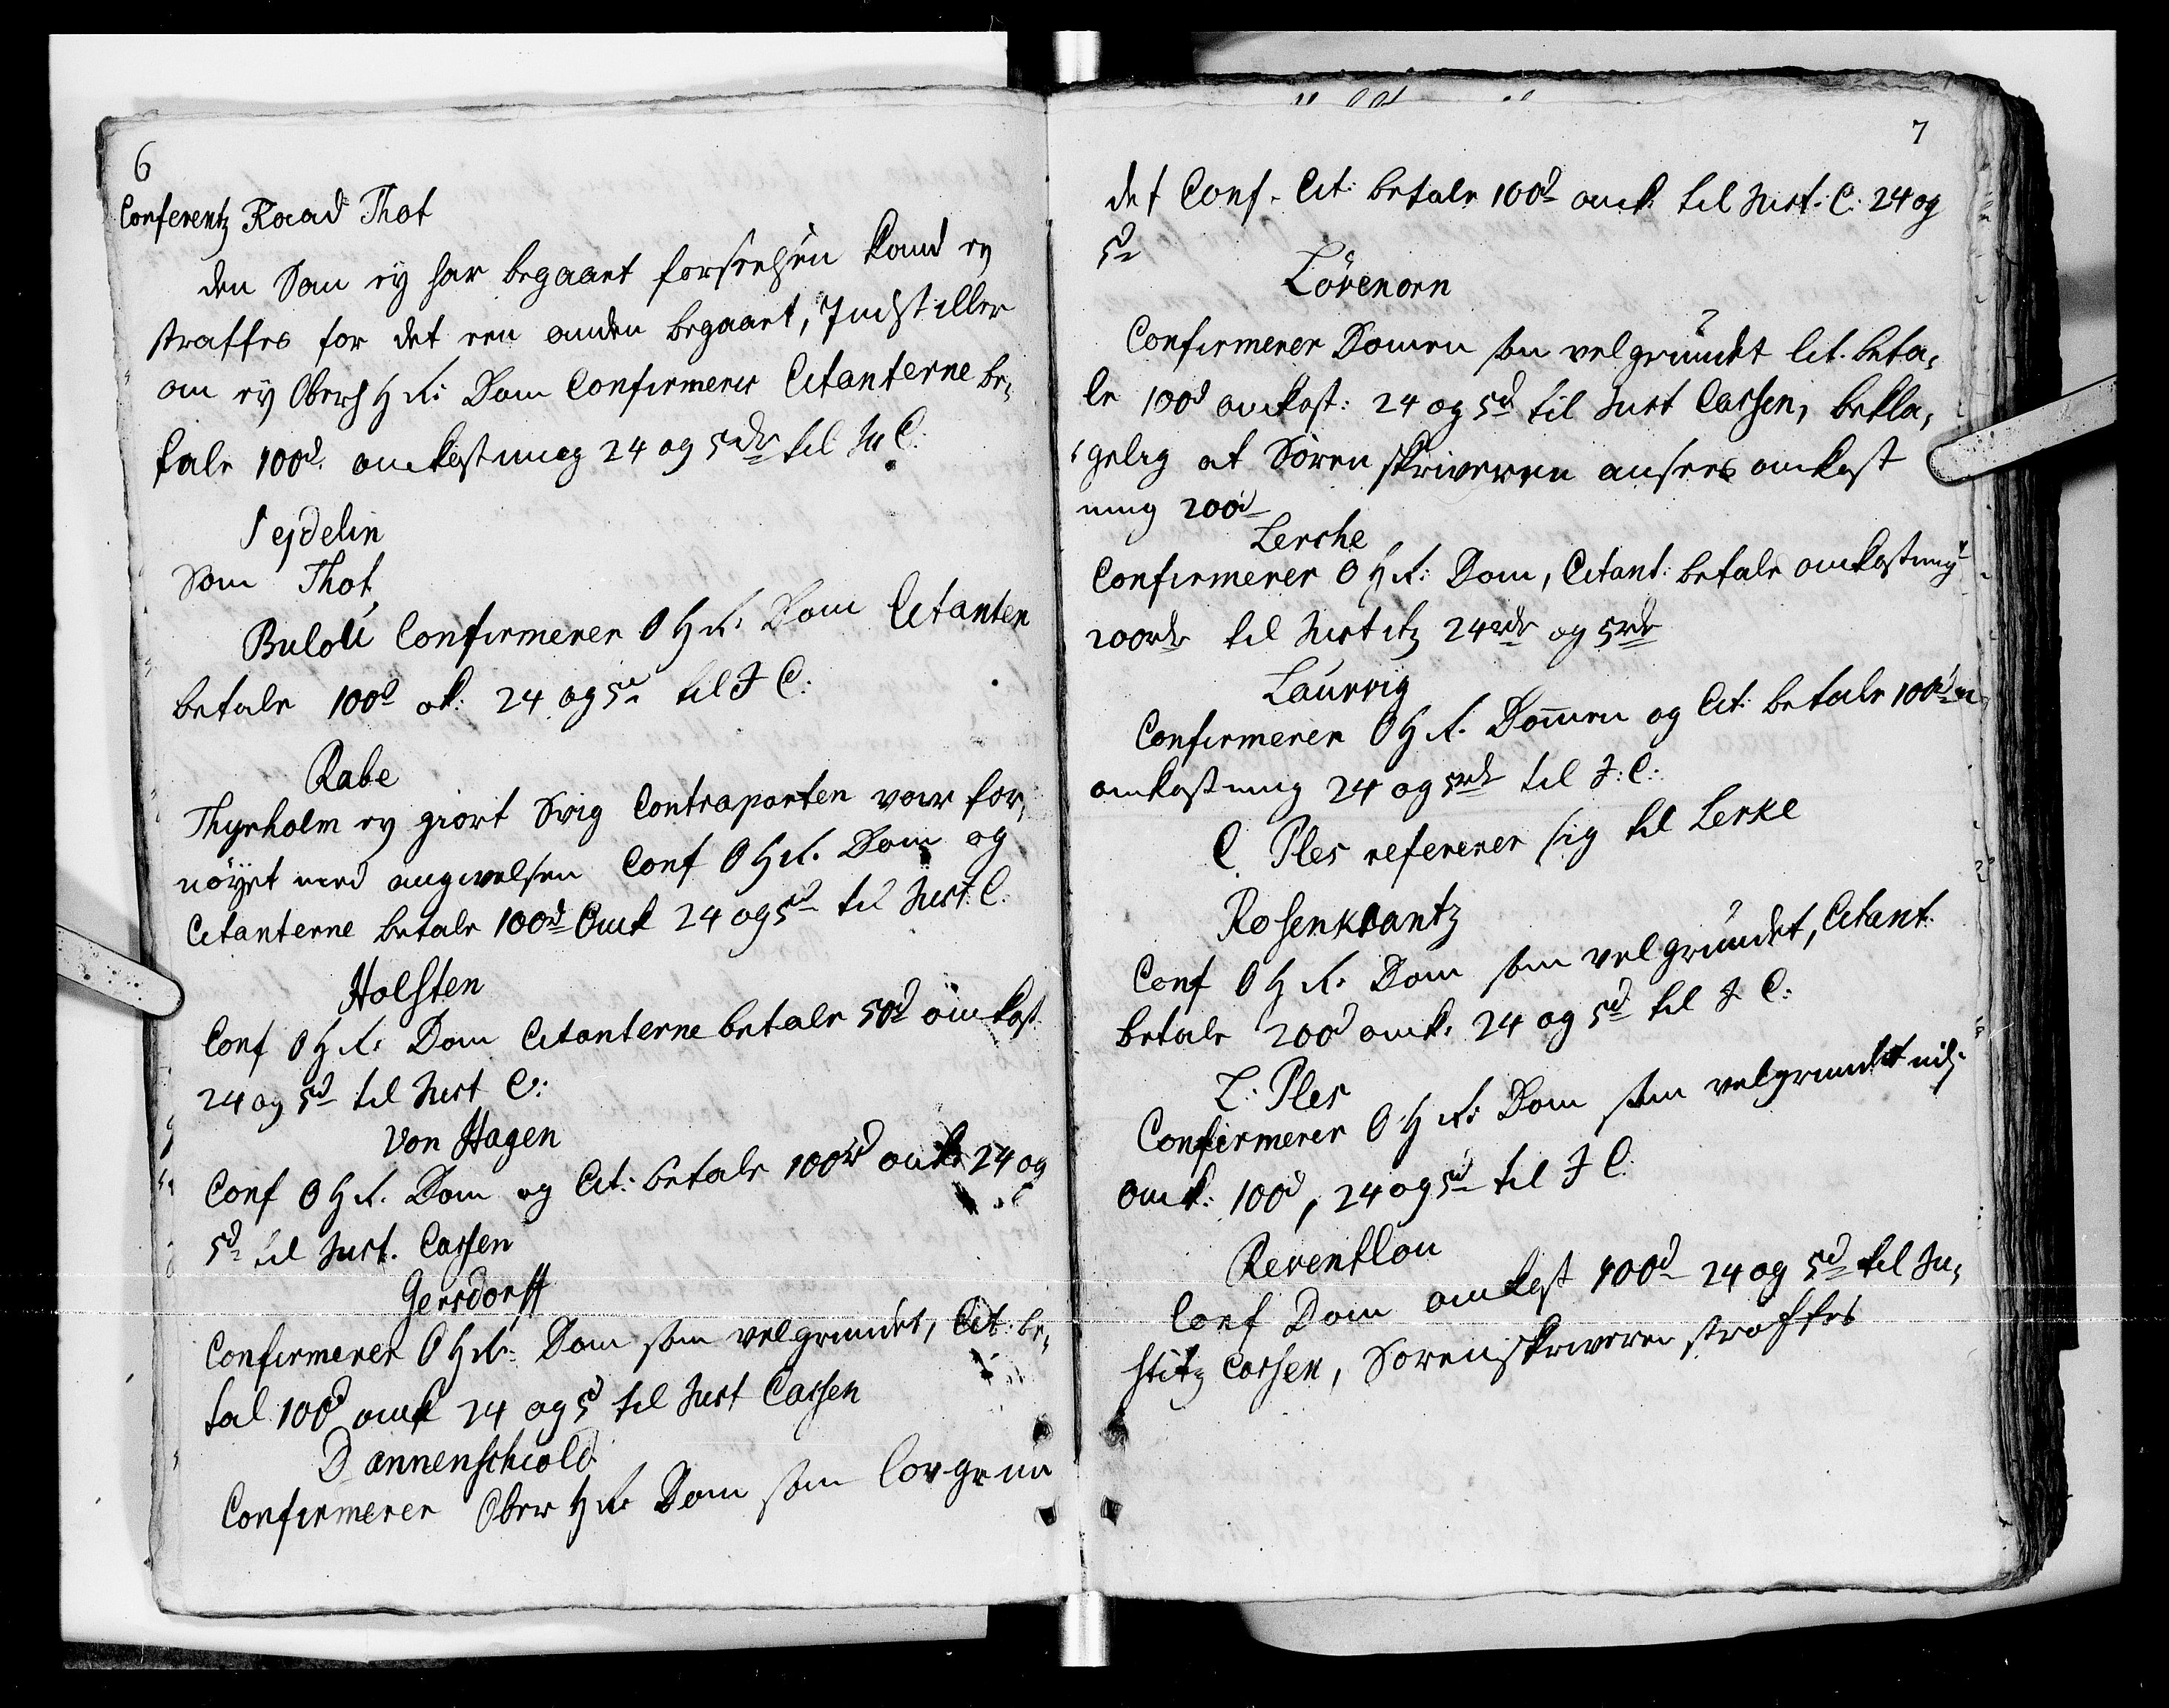 6
Conferentz Raad Thot
den Som ey har begaaet forseelsen kand ey
straffes for det een anden begaaet, Indstiller
om ey Obers H R: Dom Confirmeres Citanterne be¬
tale 100d omkostning 24 og 5 rdr til Ju C:
Seydelin
Som Thot
Bulou Confirmerer O H R: Dom Citanten
betale 100d ok: 24 og 5d til J C:
Rabe
Thyrholm ey giort Svig Contraparten var for¬
nöyet med angivelsen Conf O H R. Dom og
Citanterne betale 100d Omk 24 og 5d til Just C.
Holsten
Conf O H R: Dom Citanterne betale 50d omkost
24 og 5d til Just C:
Von Hagen
Conf O H R. Dom og Cit: betale 100rd omk: 24 og
5d til Just. Cassen
Gersdorff
Confirmerer O H R: Dom som velgrundet, Cit: be¬
tal 100d omk 24 og 5d til Just Cassen
Dannenschiold
Confirmerer Ober H R: Dom som lovgrun
7
det Conf. Cit: betale 100d omk til Just: C: 24 og
5d
Lövenorn
Confirmerer Domen som velgrundet Cit. beta¬
le 100d omkost: 24 og 5d til Just Cassen, bekla¬
gelig at Sörenskriveren ansees omkost
ning 200d
Lerche
Confirmerer O H R: Dom, Citant: betale omkostning
200rdr til Justitz 24rdr og 5rdr
Laurvig
Confirmerer O H R. Dommen og Cit: betale 100d
omkostning 24 og 5rdr til J: C:
C. Ples refererer sig til Lerke
Rosenkrantz
Conf O H R: Dom som velgrundet, Citant.
betale 200d omk: 24 og 5d til J C:
L: Ples
Confirmerer O H R: Dom som velgrundet
omk: 100d, 24 og 5d til J C:
Reventlou
Conf Dom omkost 100d 24 og 5d til Ju¬
stitz Cassen, Sorenskriveren straffes